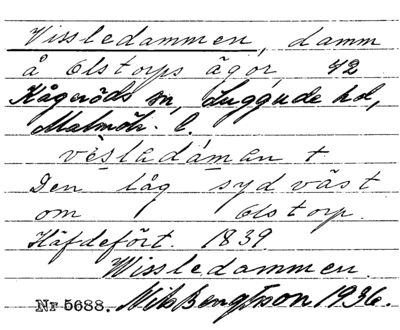 Vissledammen, damm
å Elstorps ägor, 42
Kågeröds sn, Luggude hd,
Malmöh. l.
vèsladáman +
Den låg sydväst
om Elstorp.
Häfdefört. 1839
Wissledammen.
Nr 5688. Nils Bengtsson 1936.